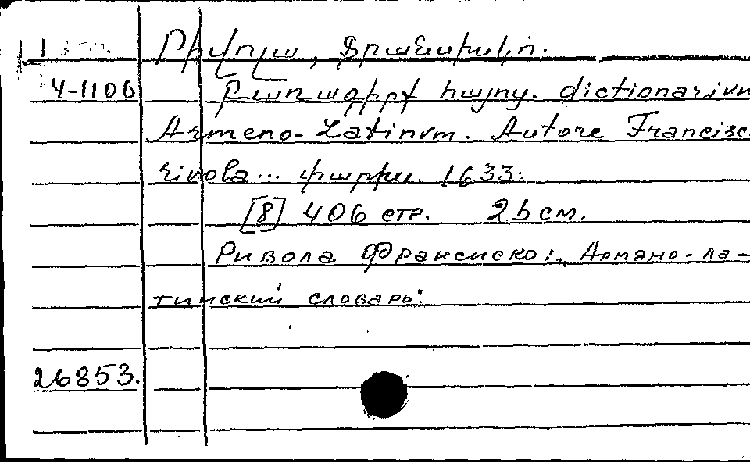 Րիվոլա, Ֆրանսիսկո.
4-1106 Բառագիրք հայոց. dictionarium
Armeno-Latinum. Autore Francisc
rivola... փարիս. 1633.
[8] 406 стр. 25 см.
Ривола Франсиско:, Армяно-ла-
тинский словарь:
26853.